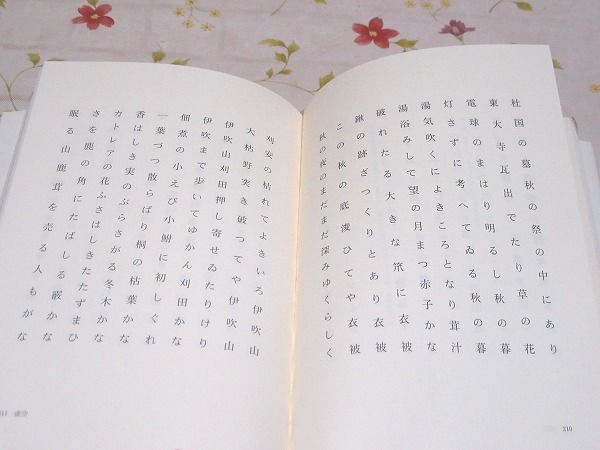 杜国の墓秋の祭の中にあり
東大寺瓦出でたり草の花
電球のまはり明るし秋の暮
灯さずに考へてゐる秋の暮
湯気吹くによきころとなり茸汁
湯浴みして望の月まつ赤子かな
破れたる大きな笊に衣被
鍬の跡ざつくりとあり衣被
この秋の底浚ひてや衣被
秋の夜のまだまだ深みゆくらしく
310
刈安の枯れてよきいろ伊吹山
大枯野突き破つてや伊吹山
伊吹山刈田押し寄せゐたりけり
伊吹まで歩いてゆかん刈田かな
佃煮の小えび小鮒に初しぐれ
一葉づつ散らばり桐の枯葉かな
香はしき実のぶらさがる冬木かな
カトレアの花ふさはしきたたずまひ
さを鹿の角にたばしる霰かな
眠る山鹿茸を売る人もがな
311 虚空